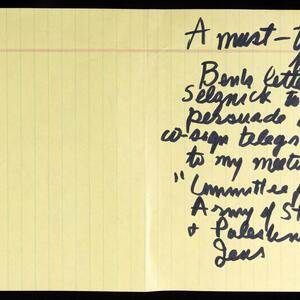 A must-
Ben's lette
Selznick to
persuade
co-sign telegr
to my meeti
"Committee f
Army of St
& Palestin
Jews